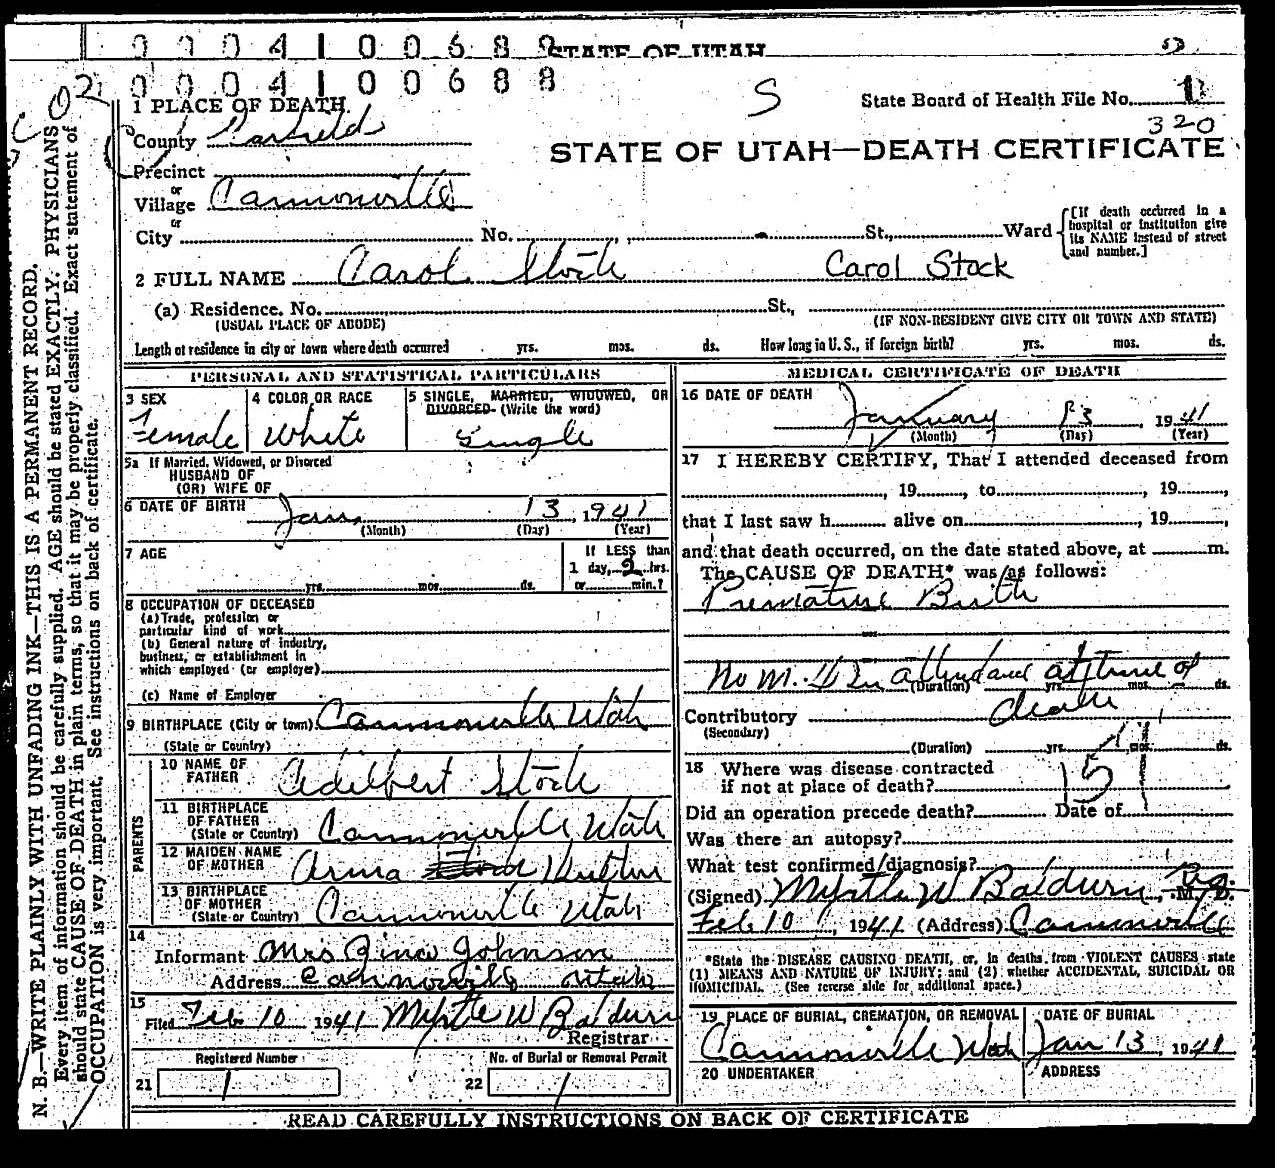 0004100688 STATE OF UTAH
0004100688
State Board of Health File No. 1
320
S
STATE OF UTAH—DEATH CERTIFICATE
1 PLACE OF DEATH
County Garfield
Precinct
or
Village Cannonville
or
City No. , St., Ward
[If death occurred in a
hospital or institution give
its NAME instead of street
and number.]
2 FULL NAME Carol Stock Carol Stock
(a) Residence. No. St.,
(USUAL PLACE OF ABODE) (IF NON-RESIDENT GIVE CITY OR TOWN AND STATE)
Length of residence in city or town where death occurred yrs. mos. ds. How long in U. S., if foreign birth? yrs. mos. ds.
PERSONAL AND STATISTICAL PARTICULARS
3 SEX
Female
4 COLOR OR RACE
White
5 SINGLE, MARRIED, WIDOWED, OR
DIVORCED (Write the word)
Single
5a If Married, Widowed, or Divorced
HUSBAND OF
(OR) WIFE OF
6 DATE OF BIRTH Jan. 13, 1941
(Month) (Day) (Year)
7 AGE
yrs. mos. ds.
If LESS than
1 day, 2 hrs.
or min.?
8 OCCUPATION OF DECEASED
(a) Trade, profession or
particular kind of work
(b) General nature of industry,
business, or establishment in
which employed (or employer)
(c) Name of Employer
9 BIRTHPLACE (City or town) Cannonville Utah
(State or Country)
PARENTS
10 NAME OF
FATHER Adelbert Stock
11 BIRTHPLACE
OF FATHER
(State or Country) Cannonville Utah
12 MAIDEN NAME
OF MOTHER
13 BIRTHPLACE
OF MOTHER
(State or Country) Cannonville Utah
14
Informant Mrs Johnson
Address Cannonville Utah
15
Filed Feb 10 1941 Myrtle W Baldwin
Registrar
Registered Number
21 1
No. of Burial or Removal Permit
22 1
MEDICAL CERTIFICATE OF DEATH
16 DATE OF DEATH
January 13, 1941
(Month) (Day) (Year)
17 I HEREBY CERTIFY, That I attended deceased from
, 19 , to , 19 ,
that I last saw h alive on , 19 ,
and that death occurred, on the date stated above, at m.
The CAUSE OF DEATH* was as follows:
Premature Birth
No M.D in attendance at time of
(Duration) yrs. mos. ds.
death
Contributory
(Secondary)
(Duration) yrs. mos. ds.
18 Where was disease contracted
if not at place of death?
Did an operation precede death? Date of
Was there an autopsy?
What test confirmed diagnosis?
(Signed) Myrtle W Baldwin, M. D.
Feb 10, 1941 (Address) Cannonville
*State the DISEASE CAUSING DEATH, or, in deaths from VIOLENT CAUSES state
(1) MEANS AND NATURE OF INJURY; and (2) whether ACCIDENTAL, SUICIDAL OR
HOMICIDAL. (See reverse side for additional space.)
19 PLACE OF BURIAL, CREMATION, OR REMOVAL
Cannonville Utah
DATE OF BURIAL
Jan 13, 1941
20 UNDERTAKER
ADDRESS
READ CAREFULLY INSTRUCTIONS ON BACK OF CERTIFICATE
N. B.—WRITE PLAINLY WITH UNFADING INK—THIS IS A PERMANENT RECORD.
Every item of information should be carefully supplied. AGE should be stated EXACTLY. PHYSICIANS
should state CAUSE OF DEATH in plain terms, so that it may be properly classified. Exact statement of
OCCUPATION is very important. See instructions on back of certificate.